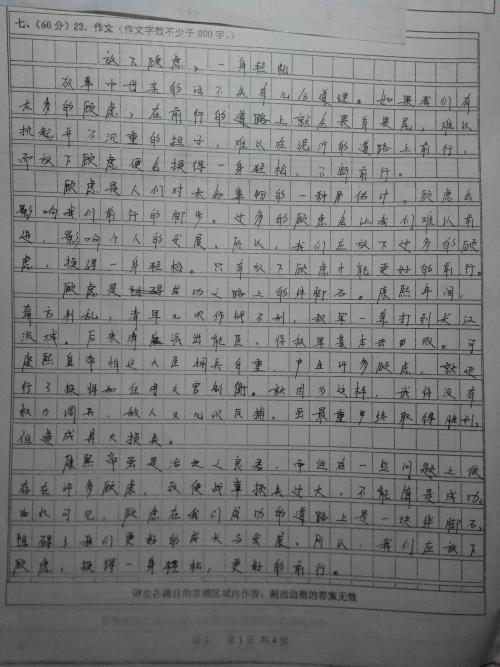 七、(60分) 23. 作文(作文字数不少于800字。)
放下顾虑,一身轻松
故事中母亲的话不无有几分道理。如果我们有
太多的顾虑,在前行的道路上就会畏首畏尾,难以
担起并不沉重的担子,难以在泥泞的道路上前行,
而放下顾虑便会换得一身轻松,不断前行。
顾虑是人们对未知事物的一种,顾虑会
影响我们前行的脚步。过多的顾虑会让我们难以前
进,影响个人的发展。所以,我们应放下过多的顾
虑,换得一身轻松。只有放下顾虑才能更好的前行。
顾虑是成功之路上的绊脚石。康熙年间,
清军几次作战不利,敌军一度打到长江
流域。后来清庭派出能臣,将敌军基本击败。可
康熙皇帝怕这大臣拥兵自重,许多顾虑,就进
行了换将和任用文官制衡。就因为这样,武将没有
权力调兵,敌人又几次反捕,虽最重多终取得胜利,
但造成具大损失。
康熙帝虽是治世之良君,而但在一些问题上依
存在许多顾虑,致使战事损失过大,不能算是成功。
由此可见,顾虑在我们成功的道路上是一块绊脚石,
阻碍了我们更好的成长与发展。所以,我们应放下
顾虑,换得一身轻松,更好的前行。
请在各题目的答题区域内作答,超出边框的答案无效
语文 第3页 共4页